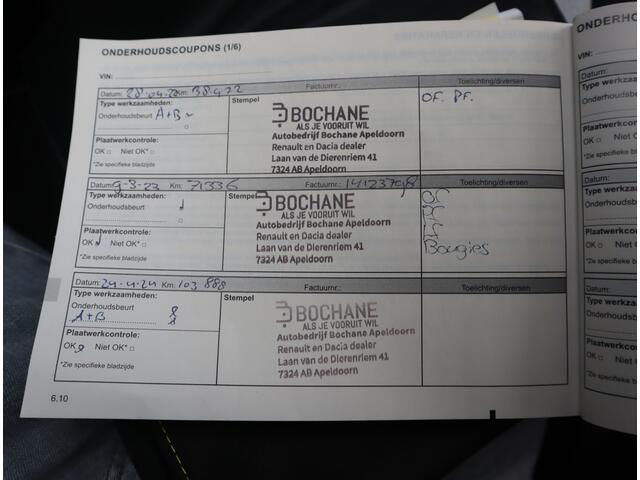 ONDERHOUDSCOUPONS (1/6)
VIN:
Datum: 28-04-22 Km: 38.422 Factuurnr.: Toelichting/diversen
Type werkzaamheden: Stempel OF. PF.
Onderhoudsbeurt A+B
BOCHANE
ALS JE VOORUIT WIL
Plaatwerkcontrole: Autobedrijf Bochane Apeldoorn
OK □ Niet OK* □ Renault en Dacia dealer
Laan van de Dierenriem 41
*Zie specifieke bladzijde 7324 AB Apeldoorn
Datum: 9-3-23 Km: 71336 Factuurnr.: Toelichting/diversen
Type werkzaamheden: Stempel
Onderhoudsbeurt
BOCHANE
ALS JE VOORUIT WIL
Plaatwerkcontrole: Autobedrijf Bochane Apeldoorn
OK Niet OK* □ Renault en Dacia dealer Bougies
Laan van de Dierenriem 41
*Zie specifieke bladzijde 7324 AB Apeldoorn
Datum: 24-4-24 Km: 103 888 Factuurnr.: Toelichting/diversen
Type werkzaamheden: Stempel
Onderhoudsbeurt
A+B
BOCHANE
ALS JE VOORUIT WIL
Plaatwerkcontrole: Autobedrijf Bochane Apeldoorn
OK Niet OK* □ Renault en Dacia dealer
Laan van de Dierenriem 41
*Zie specifieke bladzijde 7324 AB Apeldoorn
6.10
ONDERHO
VIN:
Datum:
Type werkzaa
Onderhoudsbe
Plaatwerkco
OK □ Niet
*Zie specifieke
Datum:
Type werkz
Onderhoud
Plaatwerk
OK □
*Zie specifi
Datum:
Type w
Onderh
Plaat
OK □
*Zie s